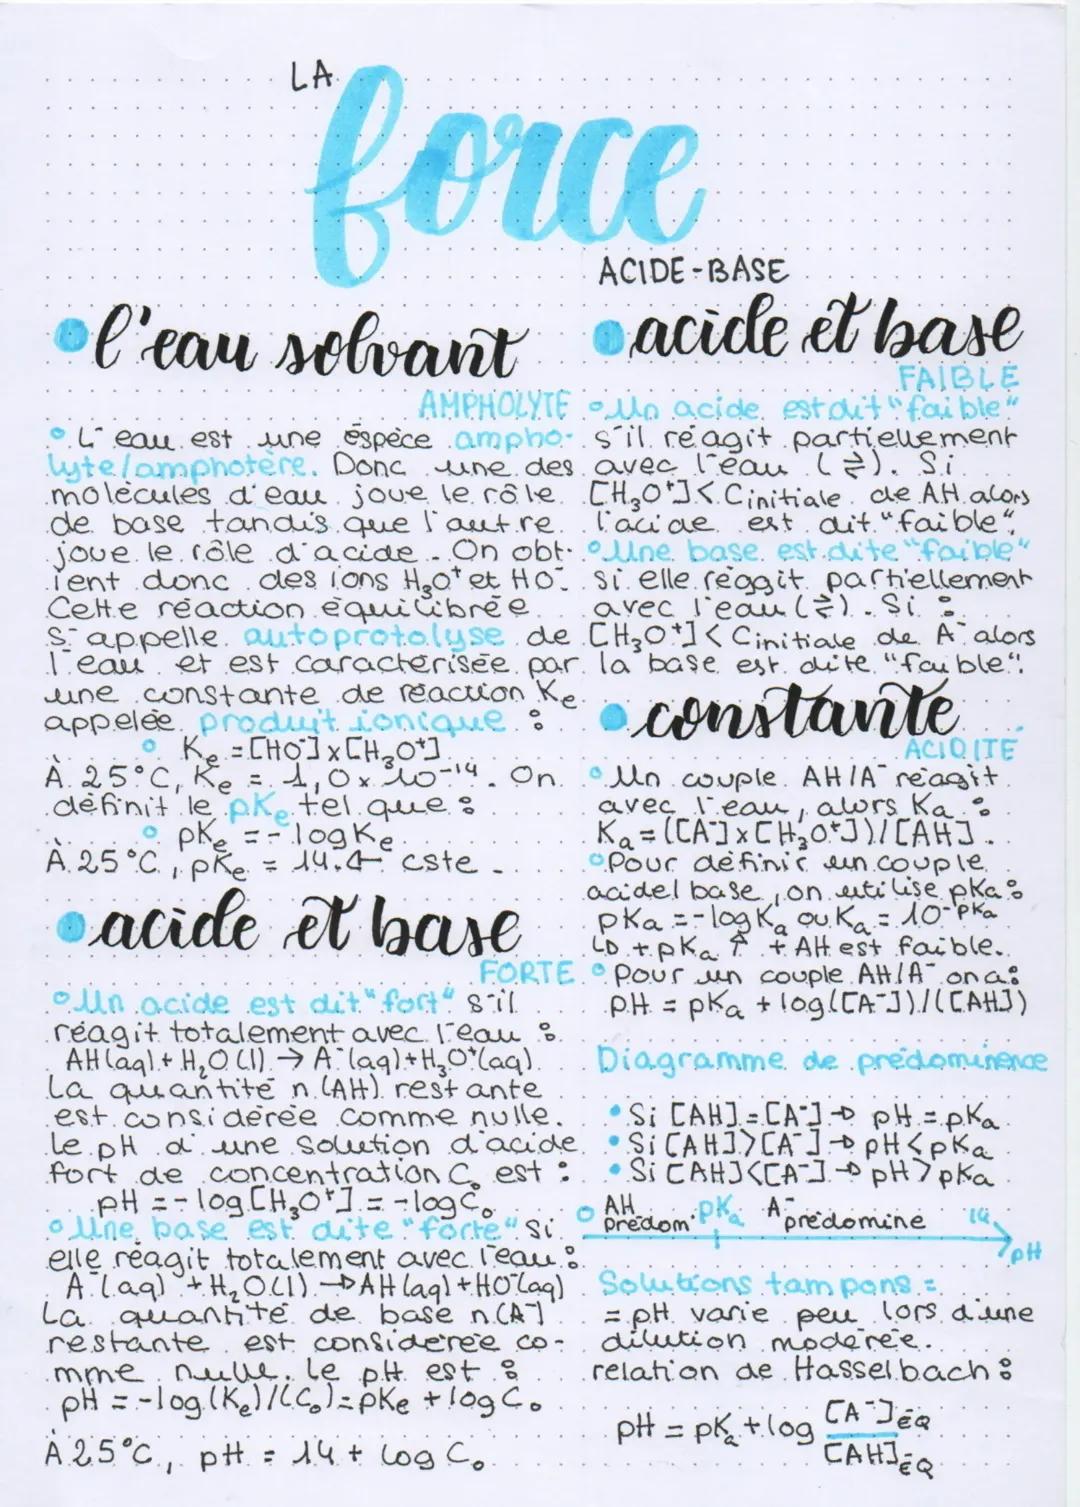 LA
force
ACIDE-BASE
l'eau solvant
AMPHOLYTE
L'eau est une éspèce ampho-
lyte/amphotère. Donc une des
molécules d'eau joue le rôle
de base tandis que l'autre
joue le rôle d'acide. On obt-
ient donc des ions H₃O⁺ et HO⁻.
Cette réaction équilibrée
s'appelle autoprotolyse de
l'eau et est caractérisée par
une constante de réaction Ke
appelée produit ionique :
Ke = [HO⁻] x [H₃O⁺]
À 25°C, Ke = 1,0 x 10⁻¹⁴. On
définit le pKe tel que :
pKe = - log Ke
À 25°C, pKe = 14. ← cste.
acide et base
FORTE
Un acide est dit "fort" s'il
réagit totalement avec l'eau :
AH(aq) + H₂O(l) → A⁻(aq) + H₃O⁺(aq)
La quantité n(AH) restante
est considérée comme nulle.
Le pH d'une solution d'acide
fort de concentration C₀ est :
pH = -log[H₃O⁺] = -log C₀
Une base est dite "forte" si
elle réagit totalement avec l'eau :
A⁻(aq) + H₂O(l) → AH(aq) + HO⁻(aq)
La quantité de base n(A⁻)
restante est considérée co-
mme nulle. Le pH est :
pH = -log(Ke)/(C₀) = pKe + log C₀
À 25°C, pH = 14 + log C₀
acide et base
FAIBLE
Un acide est dit "faible"
s'il réagit partiellement
avec l'eau (⇄). Si
[H₃O⁺] < Cinitiale de AH alors
l'acide est dit "faible".
Une base est dite "faible"
si elle réagit partiellement
avec l'eau (⇄). Si :
[H₃O⁺] < Cinitiale de A⁻ alors
la base est dite "faible".
constante
ACIDITÉ
Un couple AH/A⁻ réagit
avec l'eau, alors Ka :
Ka = ([A⁻] x [H₃O⁺])/[AH].
Pour définir un couple
acide/base, on utilise pKa :
pKa = -log Ka ou Ka = 10⁻ᵖᴷᵃ
↳ + pKa ↑ + AH est faible.
Pour un couple AH/A⁻ on a :
pH = pKa + log([A⁻])/([AH])
Diagramme de prédominence
Si [AH] = [A⁻] → pH = pKa
Si [AH] > [A⁻] → pH < pKa
Si [AH] < [A⁻] → pH > pKa
0 AH prédom. pKa A⁻ prédomine 14
pH
Solutions tampons :
= pH varie peu lors d'une
dilution modérée.
relation de Hasselbach :
pH = pKa + log [A⁻]éq
[AH]éq